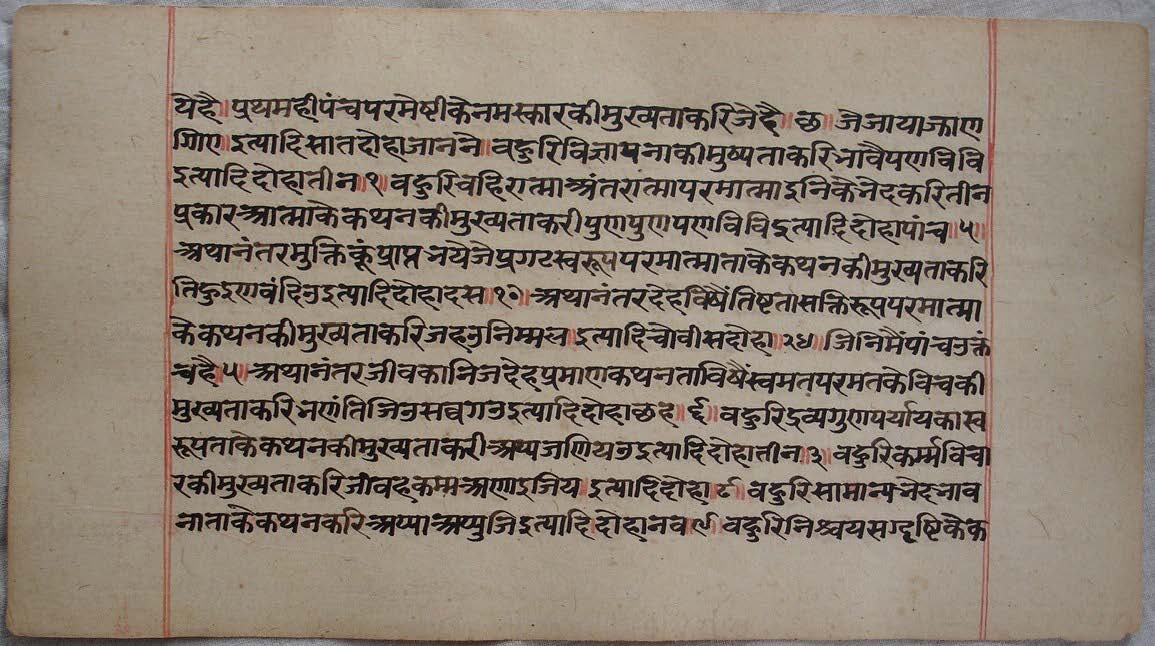 यैहै॥ प्रथमहीपंचपरमेष्टीकेनमस्कारकीमुख्यताकरिजेहै॥ छ॥ जेजायाझाण
ग्गिए॥ इत्यादिसातदोहाजाननै॥ वहुरिविज्ञापनाकीमुष्यताकरिभावैपणविवि
इत्यादिदोहातीन॥ १॥ वहुरिवहिरात्माअंतरात्मापरमात्माइनिकेभेदकरितीन
प्रकारआत्माकेकथनकीमुख्यताकरीपुणपुणपणविविइत्यादिदोहापांच॥ ५॥
अथानंतरमुक्तिकूंप्राप्तभयेजेप्रगटस्वरूपपरमात्माताकेकथनकीमुख्यताकरि
तिहुइणवंदिउइत्यादिदोहादस॥ १०॥ अथानंतरदेहविषैंतिष्टतासक्तिरूपपरमात्मा
केकथनकीमुख्यताकरिजहउनिम्मल इत्यादिचौवीसदोहा॥ २४॥ जिनिमैंपांचउक्तं
चहै॥ ५॥ अथानंतरजीवकानिजदेहप्रमाणकथनताविषैंस्वमतपरमतकेविचकी
मुख्यताकरिभणंतिजिउसव्वगउइत्यादिदोहाछह॥ ६॥ वहुरिद्रव्यगुणपर्यायकास्व
रूपताकेकथनकीमुख्यताकरीअप्पजणियउइत्यादिदोहातीन॥ ३॥ वहुरिकर्म्मविचा
रकीमुख्यताकरिजीवहकम्मअणाइजिय इत्यादिदोहा॥ ८॥ वहुरिसामान्यभेदभाव
नाताकेकथनकरिअप्पाअप्पुजिइत्यादिदोहानव॥ ९॥ वहुरिनिश्चयसग्दृष्टिकेक